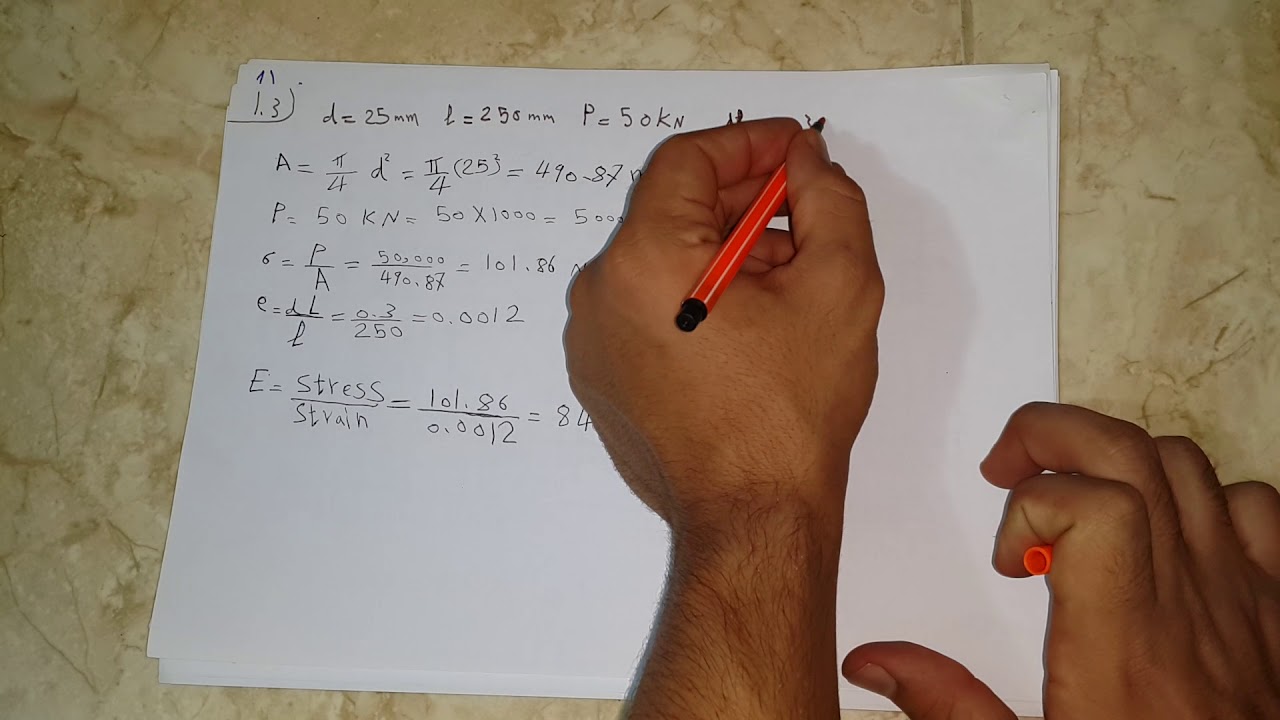 11
1.3) d = 25 mm l = 250 mm P = 50 KN
A = π/4 d² = π/4 (25)² = 490.87
P = 50 KN = 50 X 1000 = 5000
σ = P/A = 50,000/490.87 = 101.86 N
e = dL/l = 0.3/250 = 0.0012
E = Stress/Strain = 101.86/0.0012 = 84